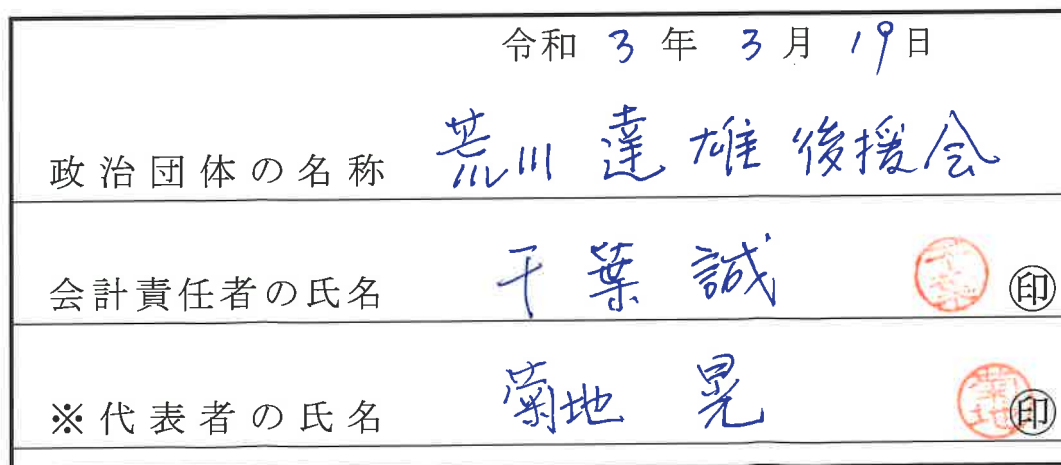 令和 3 年 3 月 19 日
政治団体の名称 荒川達雄後援会
会計責任者の氏名 千葉 誠 千葉 印
※代表者の氏名 菊地 晃 菊地 印